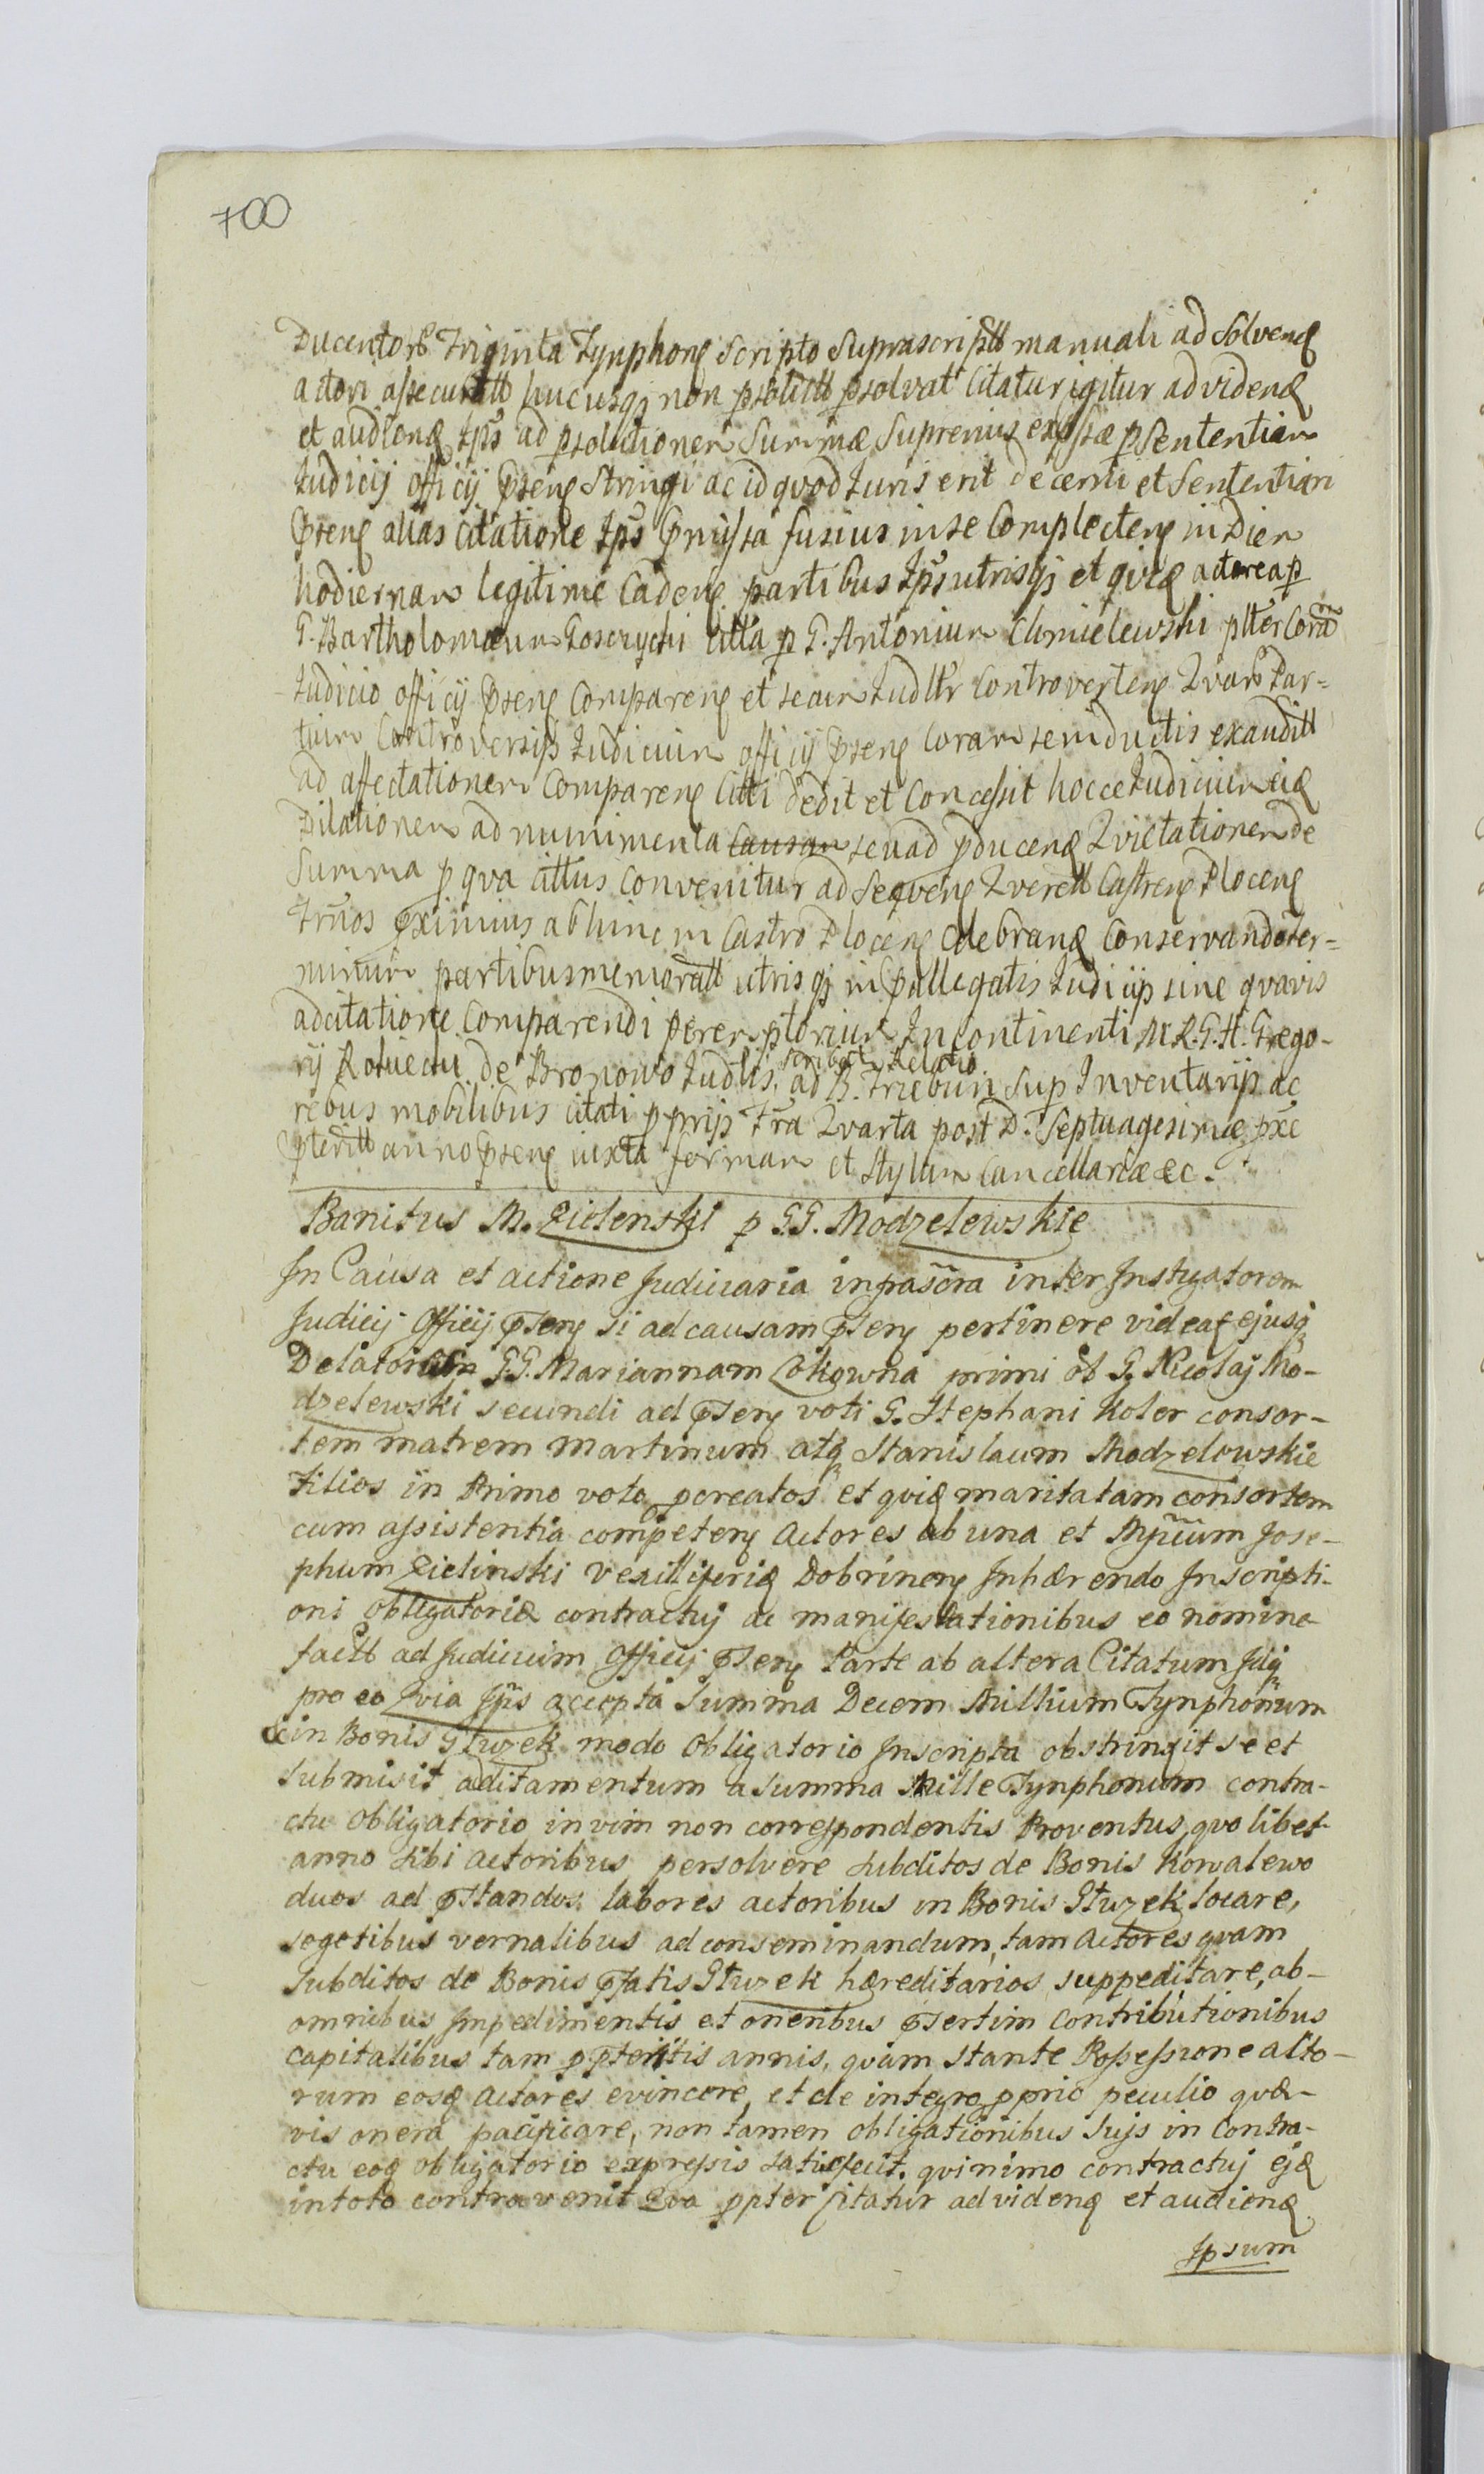 700
Ducentorũ Triginta Tynphonę Scripto Suprascriptt manuali adsolvenę
actori assecuratt hucusqȝ non psolutt psolvat Citatur igitur ad videnę
et audienę Ips̄ ad psolutionem Summæ Supremius expssæ p Sententiam
Iudicij officij psenę Stringi ac id quod Iuris erit decerni et Sententiam
psenę alias Citatione Ips̄ pmissa fusius in se Complectenę in Diem
hodiernam legitime Cadenę partibus Ips̄ utrisqȝ et quidę actorea p
G. Bartholomæum Goscrychi citta p G. Antonium Chmielewski plter Corã
Iudicio officij psenę Comparenę et secum Iudltr Controvertenę Quarũ Par=
tium Controversijs Iudicium officij psenę Coram se inductis exauditt
ad affectationem Comparenę Citti dedit et Concessit hocce Iudicium eidę
Dilationem ad munimenta Causam seu ad pducenę Quietationem de
Summa p qva cittus Convenitur ad Seqvenę Qverell Castrenę Plocenę
Trn̄os pximius abhinc in Castro Plocenę Celebranę Conservando ter=
minum partibus memoratt utrisqȝ in pallegatis Iudicijs sine qvavis
adcitatione Comparendi peremptorium In continenti M. R. G. H. Grego-
rij de Bromowo Iudlis, scribatr Relatio ad B. Triebun Sup Inventarijs ac
rebus mobilibus citati pprijs Fra Qvarta post D. Septuagesimæ pxe
pteritt anno psenę iuxta formam et Stylum Cancellariæ ec.
Banitus M. Zielenski p GG. Modzelewskie
In Causa et actione Judiciaria infrascra inter Instygatorem
Judicij Officij psenę si ad causam psenę pertinere videaꝶ ejusqȝ
Delatorum GG. Mariannam Cokowna primi ol G. Nicolaj Mo-
dzelewski secundi ad psenę voti G. Stephani Koler consor-
tem matrem Martinum atqȝ Stanislaum Modzelowskie
Filios in Primo voto pcreatos et quidę maritatam consortem
cum assistentia competenę Actores ab una et Mgficum Jose-
phum Zielinski Vexilliferidę Dobrinenę Inhærendo Inscripti-
oni Obligatoriæ contractuj ac manifestationibus eo nomine
factt ad Judicium Officij psenę Parte ab altera Citatum Jdqȝ
pro eo Qvia Jps̄ accepta Summa Decem Millium Tynphonum
&in Bonis Gluzek modo Obligatorio Inscripta obstringit se et
submisit aditamentum a Summa Mille Tynphonum contra-
ctu Obligatorio in vim non correspondentis Proventus, qvolibet
anno sibi Actoribus persolvere subditos de Bonis Kowalewo
duos ad pstandos labores actoribus in Bonis Gluzek locare,
segetibus vernalibus ad conseminandum, tam Actores qvam
Subditos de Bonis pfatis Gluzek hæreditarios suppeditare, ab-
omnibus Impedimentis et oneribus psertim Contributionibus
capitalibus tam ppteritis annis, qvam stante Possessione acto-
rum eosdę Actores evincere, et de integro pprio peculio qvæ-
vis onera pacificare, non tamen obligationibus sujs in Contra-
ctu eodę obligatorio expressis satisfecit. qvinimo contractuj ejdę
in toto contravenit Qva ppter Citatur ad videnę et audienę
Ipsum